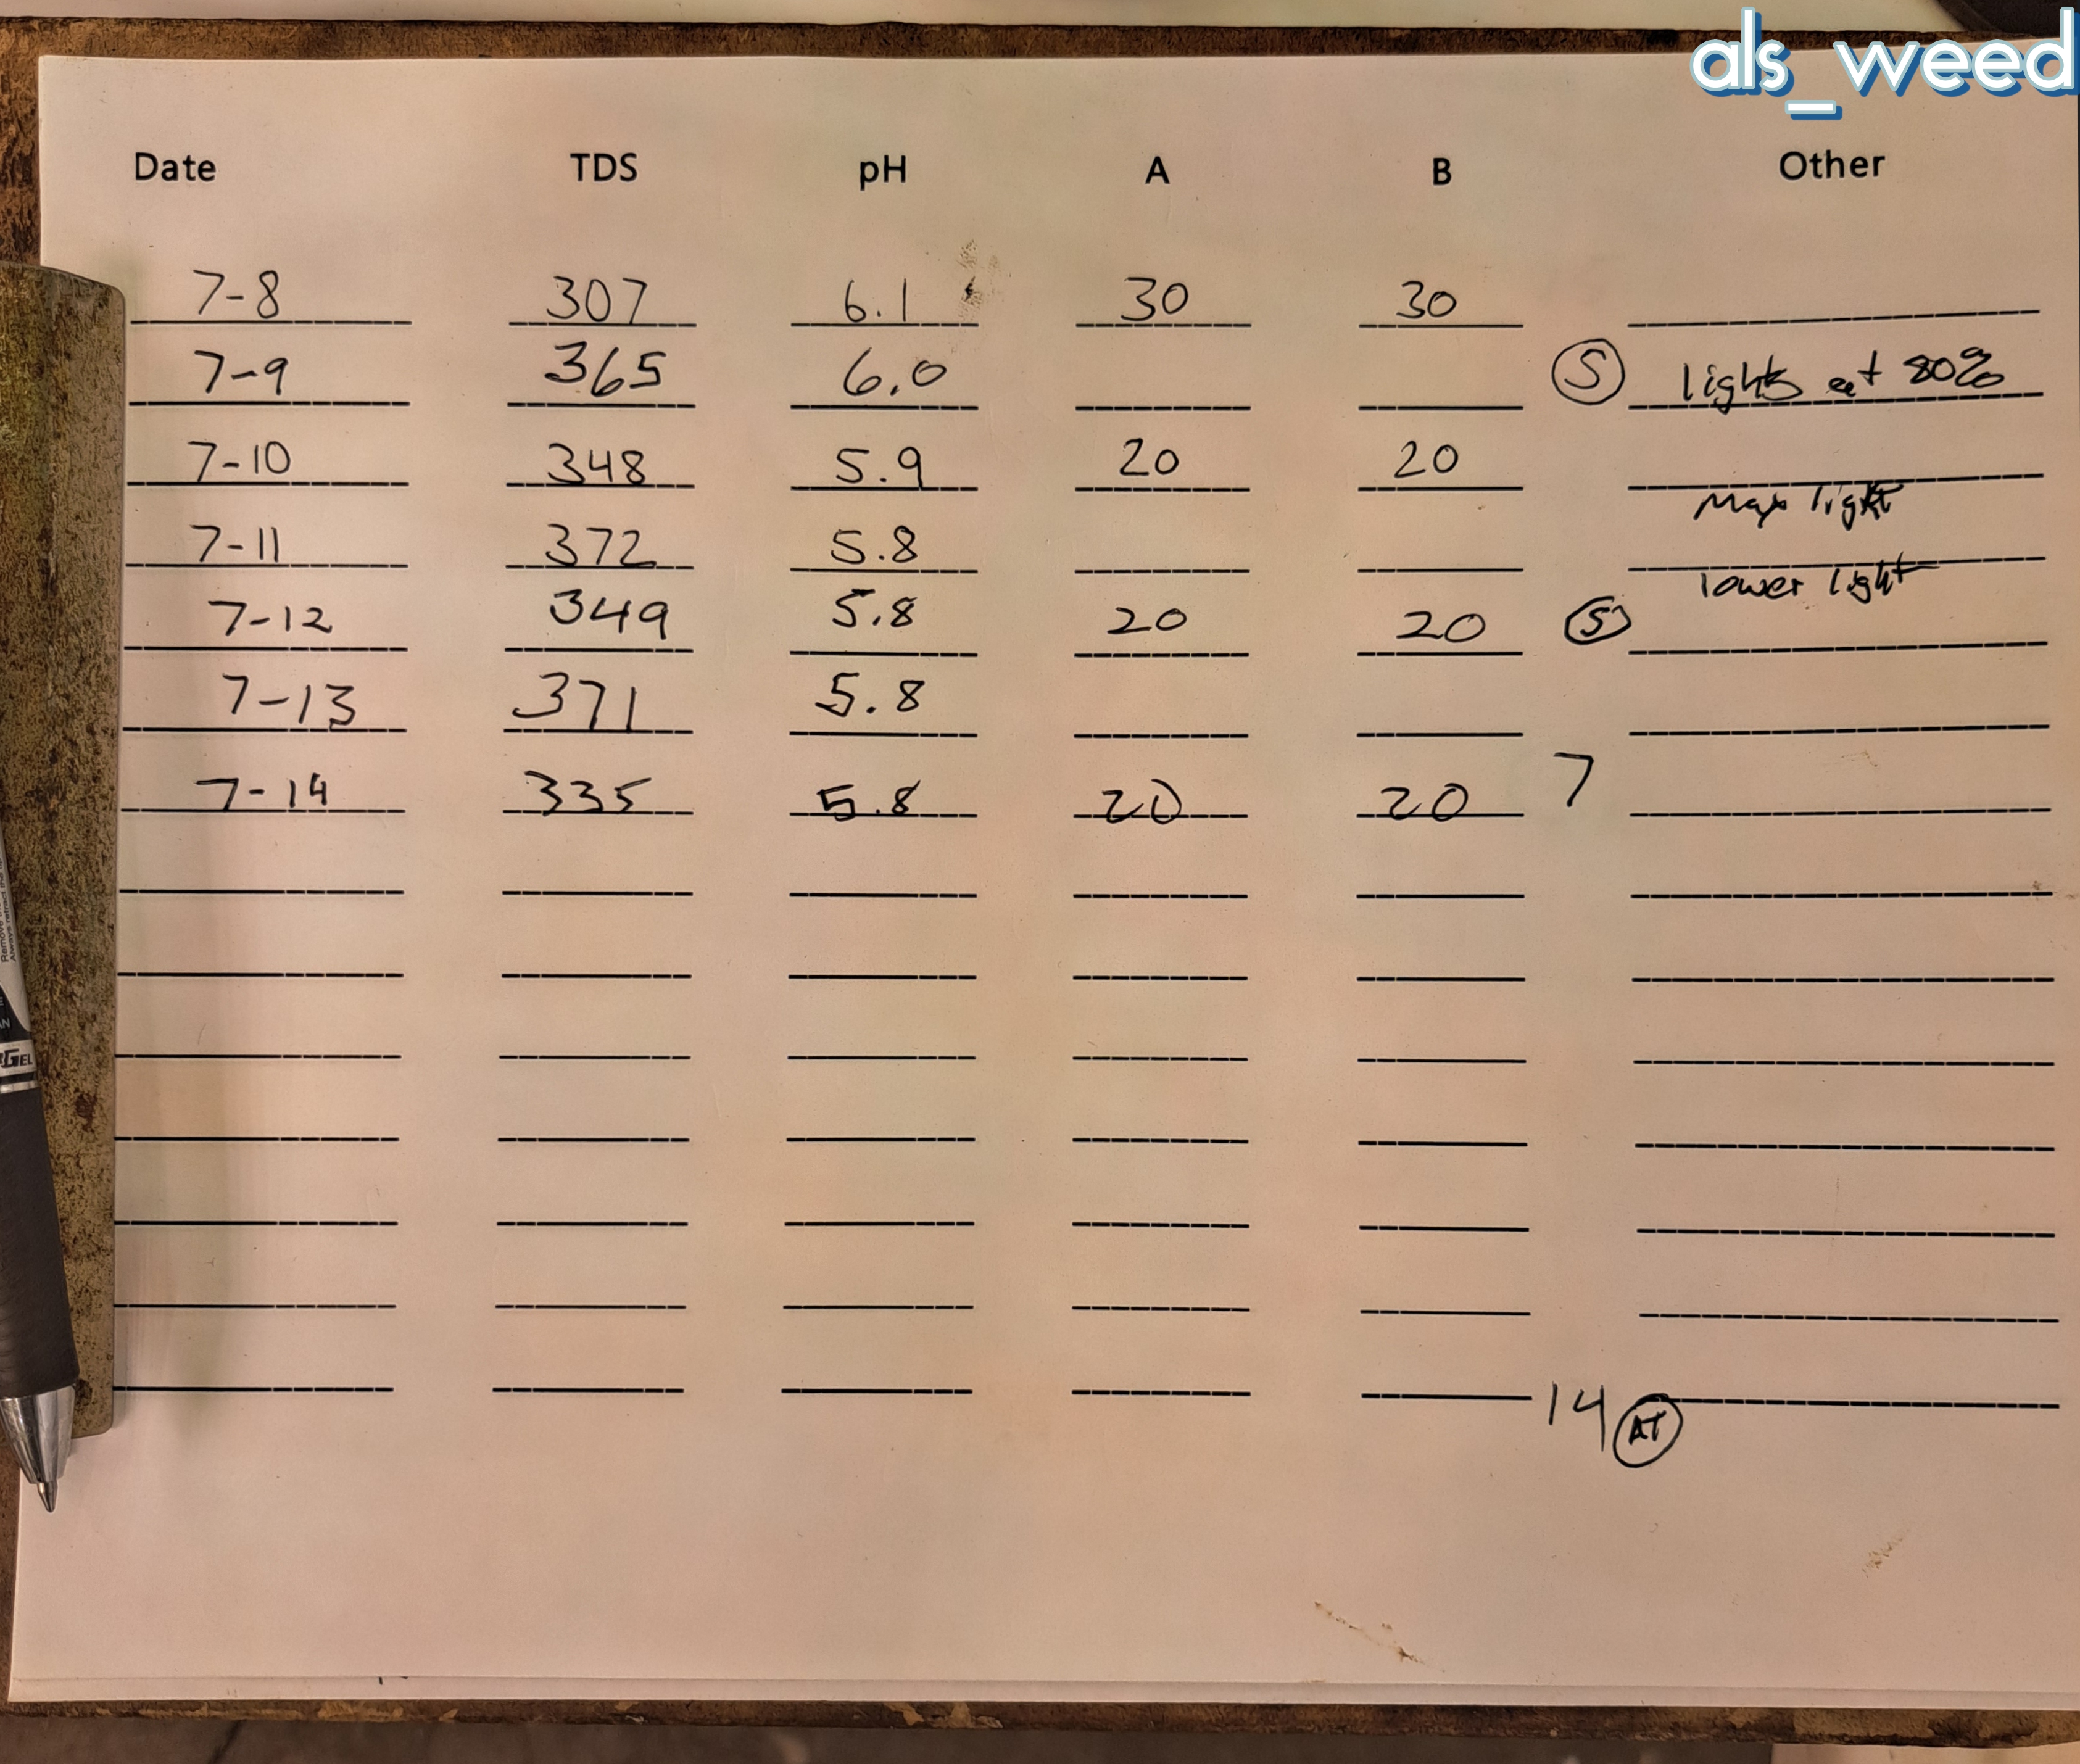 als_weed
Date TDS pH A B Other
7-8 307 6.1 30 30
7-9 365 6.0 S lights at 80%
7-10 348 5.9 20 20
Max light
7-11 372 5.8
lower light
7-12 349 5.8 20 20 S
7-13 371 5.8
7-14 335 5.8 20 20 7
14 AT
GEL